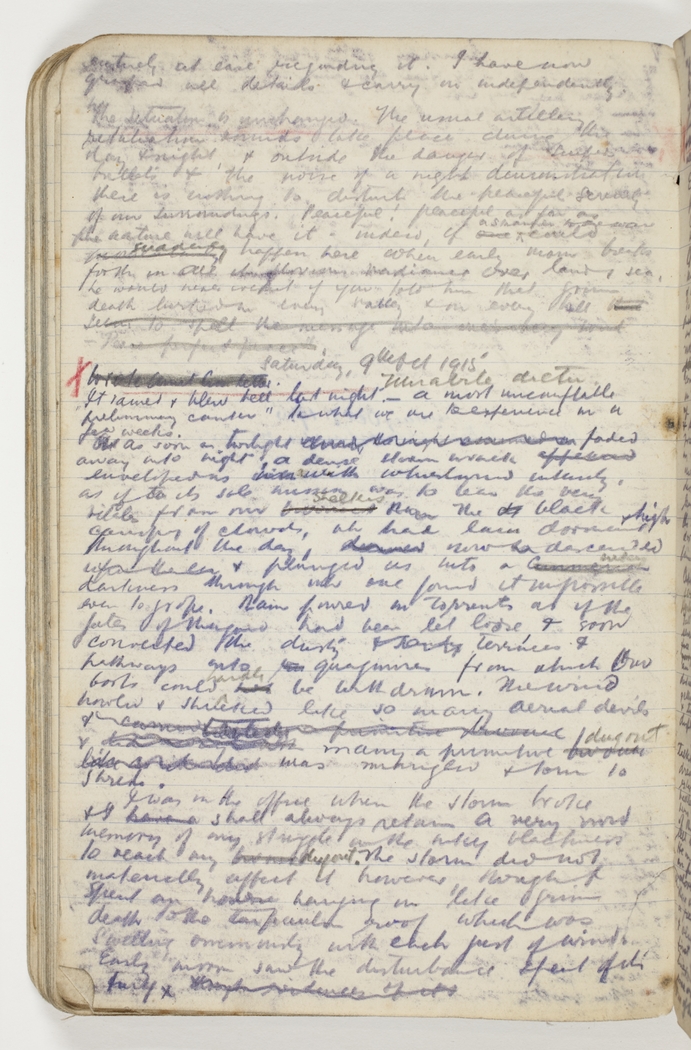 entirely at ease regarding it. I have now
grasped all details & carry on independently.
The situation is unchanged. The usual artillery
retaliation rounds take place during the
day & night, & outside the danger of
bullets & the noise of a night demonstration
there is nothing to disturb the peaceful serenity
of our surroundings. Peaceful, peaceful as far as
nature will have it - indeed, if a stranger to a war
suddenly happen here when early morn breaks
forth in all its glorious radiance over land & sea,
he would never credit if you told him that grim
death lurked in every valley & on every hill
seems to spell the message
Peace perfect peace"
Saturday, 9th Oct 1915
Mirabile dictu
It rained & blew hell last night. - a most uncomfortable
preliminary canter" to what we are to experience in a
few weeks.
As soon as twilight faded
away into night, a dense storm wrack
enveloped us with whirlwind intensity,
as if its sole mission was to tear the very
from our shelters. Then the black & high
canopy of clouds, wh had lain dormant
throughout the day, now descended
& plunged us into a
darkness through wh one found it impossible
even to grope. Rain poured in torrents as if the
gates of had been let loose & soon
converted the dusty terraces &
pathways into quagmires from which our
boots could hardly be withdrawn. The wind
howled & shrieked like so many aerial devils
& many a primitive dugout
was mangled & torn to
shreds.
I was in the office when the storm broke
& I shall always retain a very vivid
memory of my struggle in the inky blackness
to reach my dugout. The storm did not
materially affect it however, though I
spent an hour hanging on like grim
death to the tarpaulin roof which was
swelling ominously with each gust of wind.
Early morn saw the disturbance spent of its
fury &